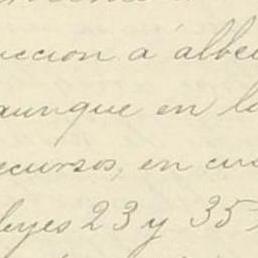 ucción á albe
aunque en l
ecursos, en cu
leyes 23 y 35